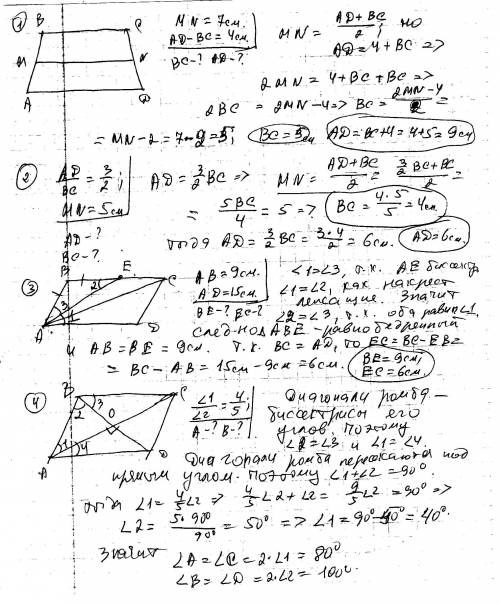 1 B C
M N
A D
MN = 7см.
AD-BC = 4см
BC-? AD-?
MN = (AD+BC)/2; но
AD = 4+BC =>
2MN = 4+BC+BC =>
2BC = 2MN-4 => BC = (2MN-4)/2 =
= MN-2 = 7-2=5; BC=5см AD=BC+4=4+5=9см
2 AD/BC = 3/2; AD = 3/2 BC => MN = (AD+BC)/2 = (3/2 BC+BC)/2 =
MN=5см
= 5BC/4 = 5 => BC = 4·5/5 = 4см.
AD-?
BC-?
тогда AD = 3/2 BC = 3·4/2 = 6см. AD=6см.
3 B E C
1 2
3
A D
AB=9см.
AD=15см.
BE-? EC-?
∠1=∠3, т.к. AE биссектр
∠1=∠2, как накрест
лежащие. Значит
∠2=∠3, т.к. оба равны ∠1,
след-но ΔABE - равнобедренный
и AB=BE = 9см. т.к. BC = AD, то EC=BC-EB=
= BC-AB = 15см-9см=6см. BE=9см; EC=6см.
4 B C
2 3
O
1 4
A D
∠1/∠2 = 4/5;
A-? B-?
Диагонали ромба -
биссектрисы его
углов. Поэтому
∠2=∠3 и ∠1=∠4.
Диагонали ромба пересекаются под
прямым углом. Поэтому ∠1+∠2 = 90°.
тогда ∠1 = 4/5∠2 => 4/5∠2+∠2 = 9/5∠2 = 90° =>
∠2 = 5·90°/90° = 50° => ∠1=90°-50°=40°.
Значит
∠A=∠C=2·∠1=80°
∠B=∠D=2·∠2=100°.